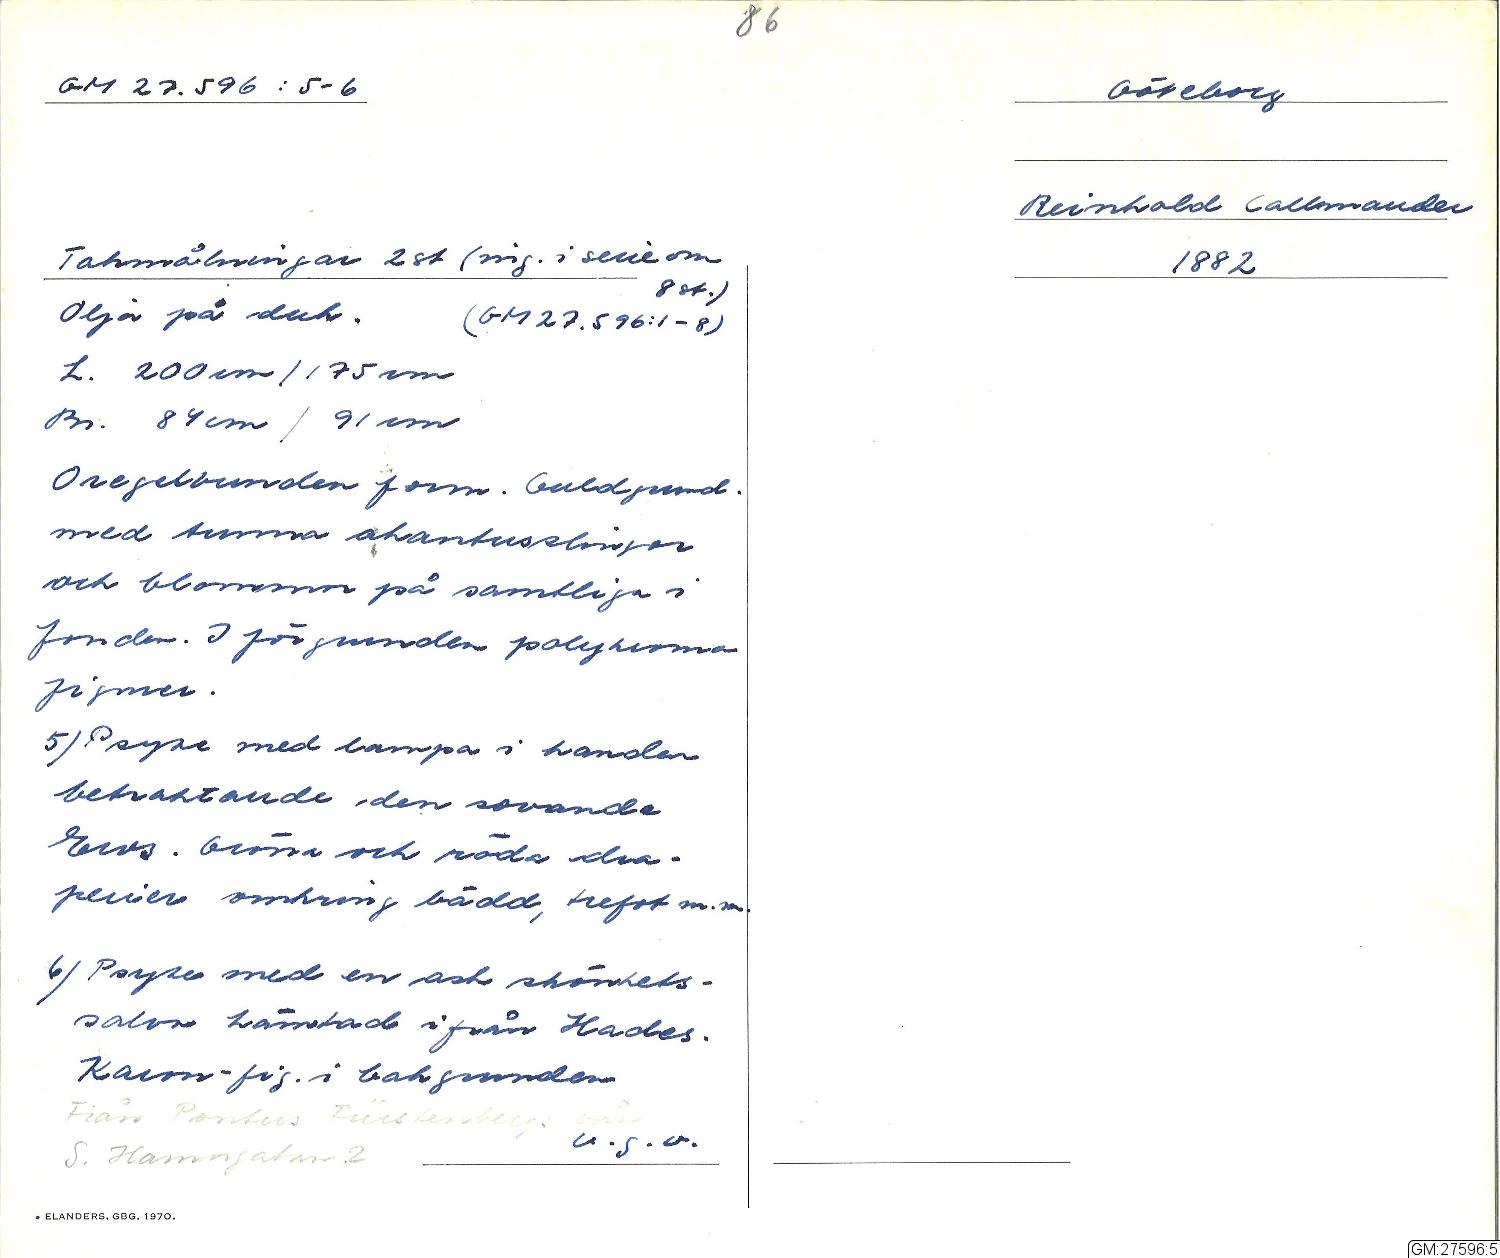 86
GM 27.596 : 5-6
Göteborg
Reinhold Callmander
1882
Takmålningar 2 st (ing. i serie om
8 st.)
Olja på duk. (GM 27.596:1-8)
L. 200 cm / 175 cm
Br. 84 cm / 91 cm
Oregelbunden form. Guldgrund.
med tunna akantusslingor
och blommor på samtliga i
fonden. I förgrunden polykroma
figurer.
5) Psyke med lampa i handen
betraktande den sovande
Eros. Gröna och röda dra-
perier omkring bädd, trefot m.m.
6) Psyke med en ask skönhets-
salva hämtad ifrån Hades.
Karon-fig. i bakgrunden
Från Pontus Fürstenbergs vån
S. Hamngatan 2
v.g.v.
ELANDERS, GBG. 1970.
GM:27596:5